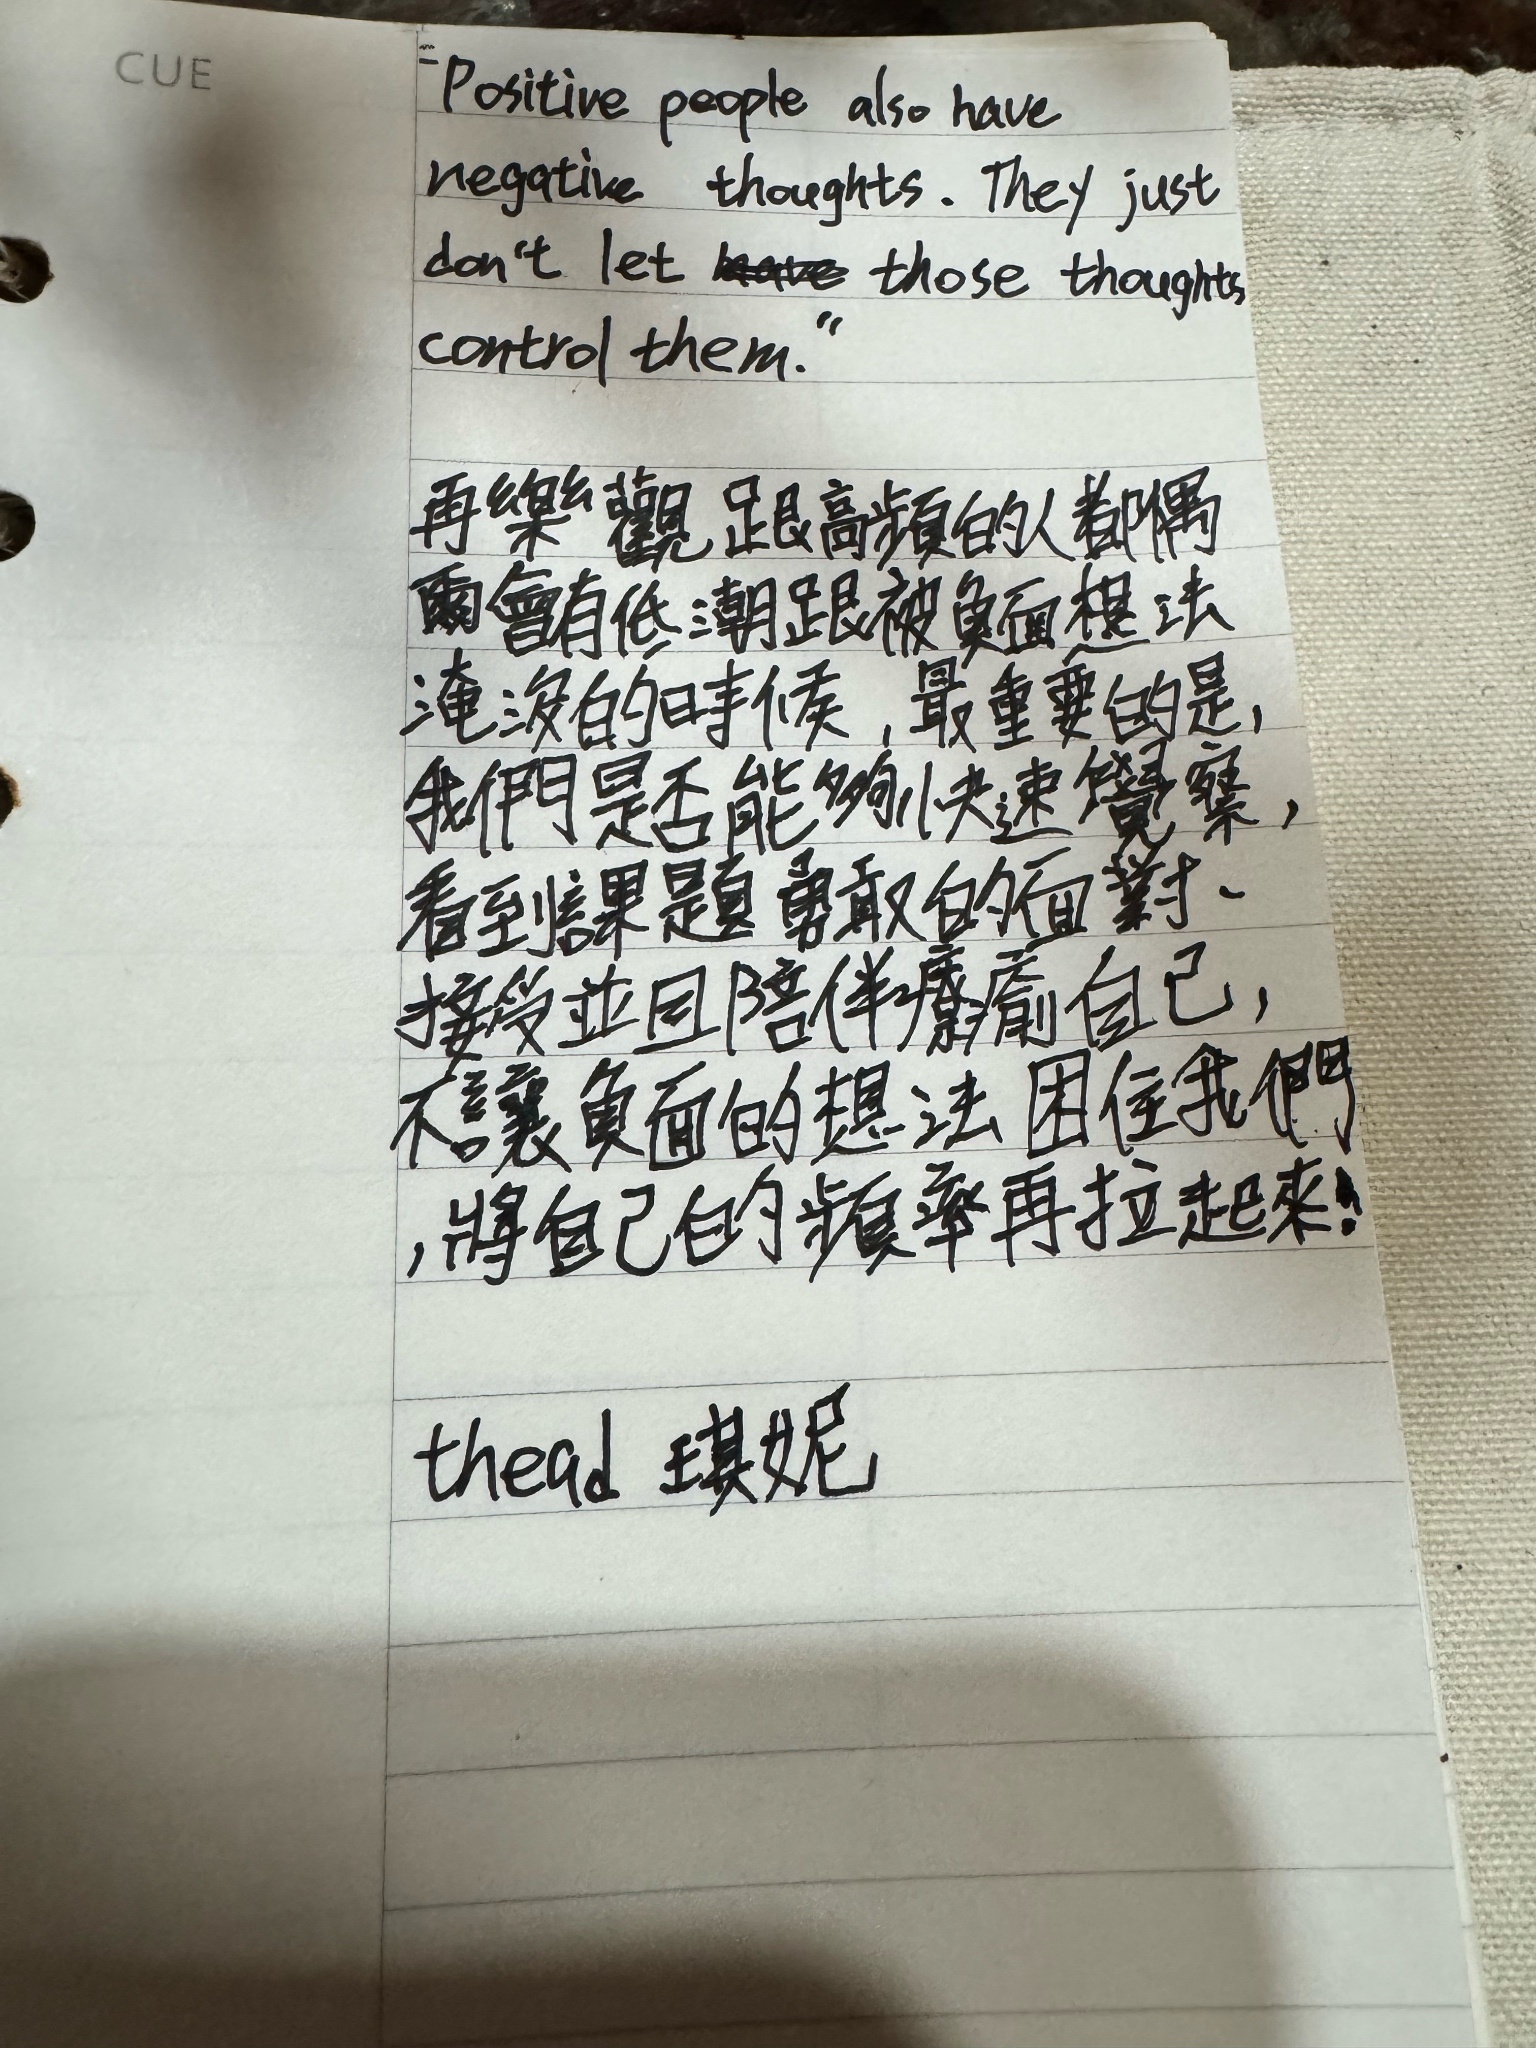 CUE
"Positive people also have
negative thoughts. They just
don't let those thoughts
control them."
再樂觀跟高頻的人都偶
爾會有低潮跟被負面想法
淹沒的時候,最重要的是,
我們是否能夠快速覺察,
看到課題勇敢的面對、
接受並且陪伴療癒自己,
不讓負面的想法困住我們
,將自己的頻率再拉起來!
thead 琪妮